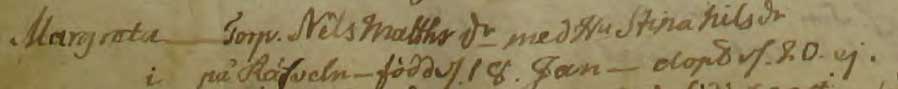 Margreta Torp. Nils Matths dr med Hu Stina Nils dr
i på – född d. 18. Jan – döpt d. 20. ej.